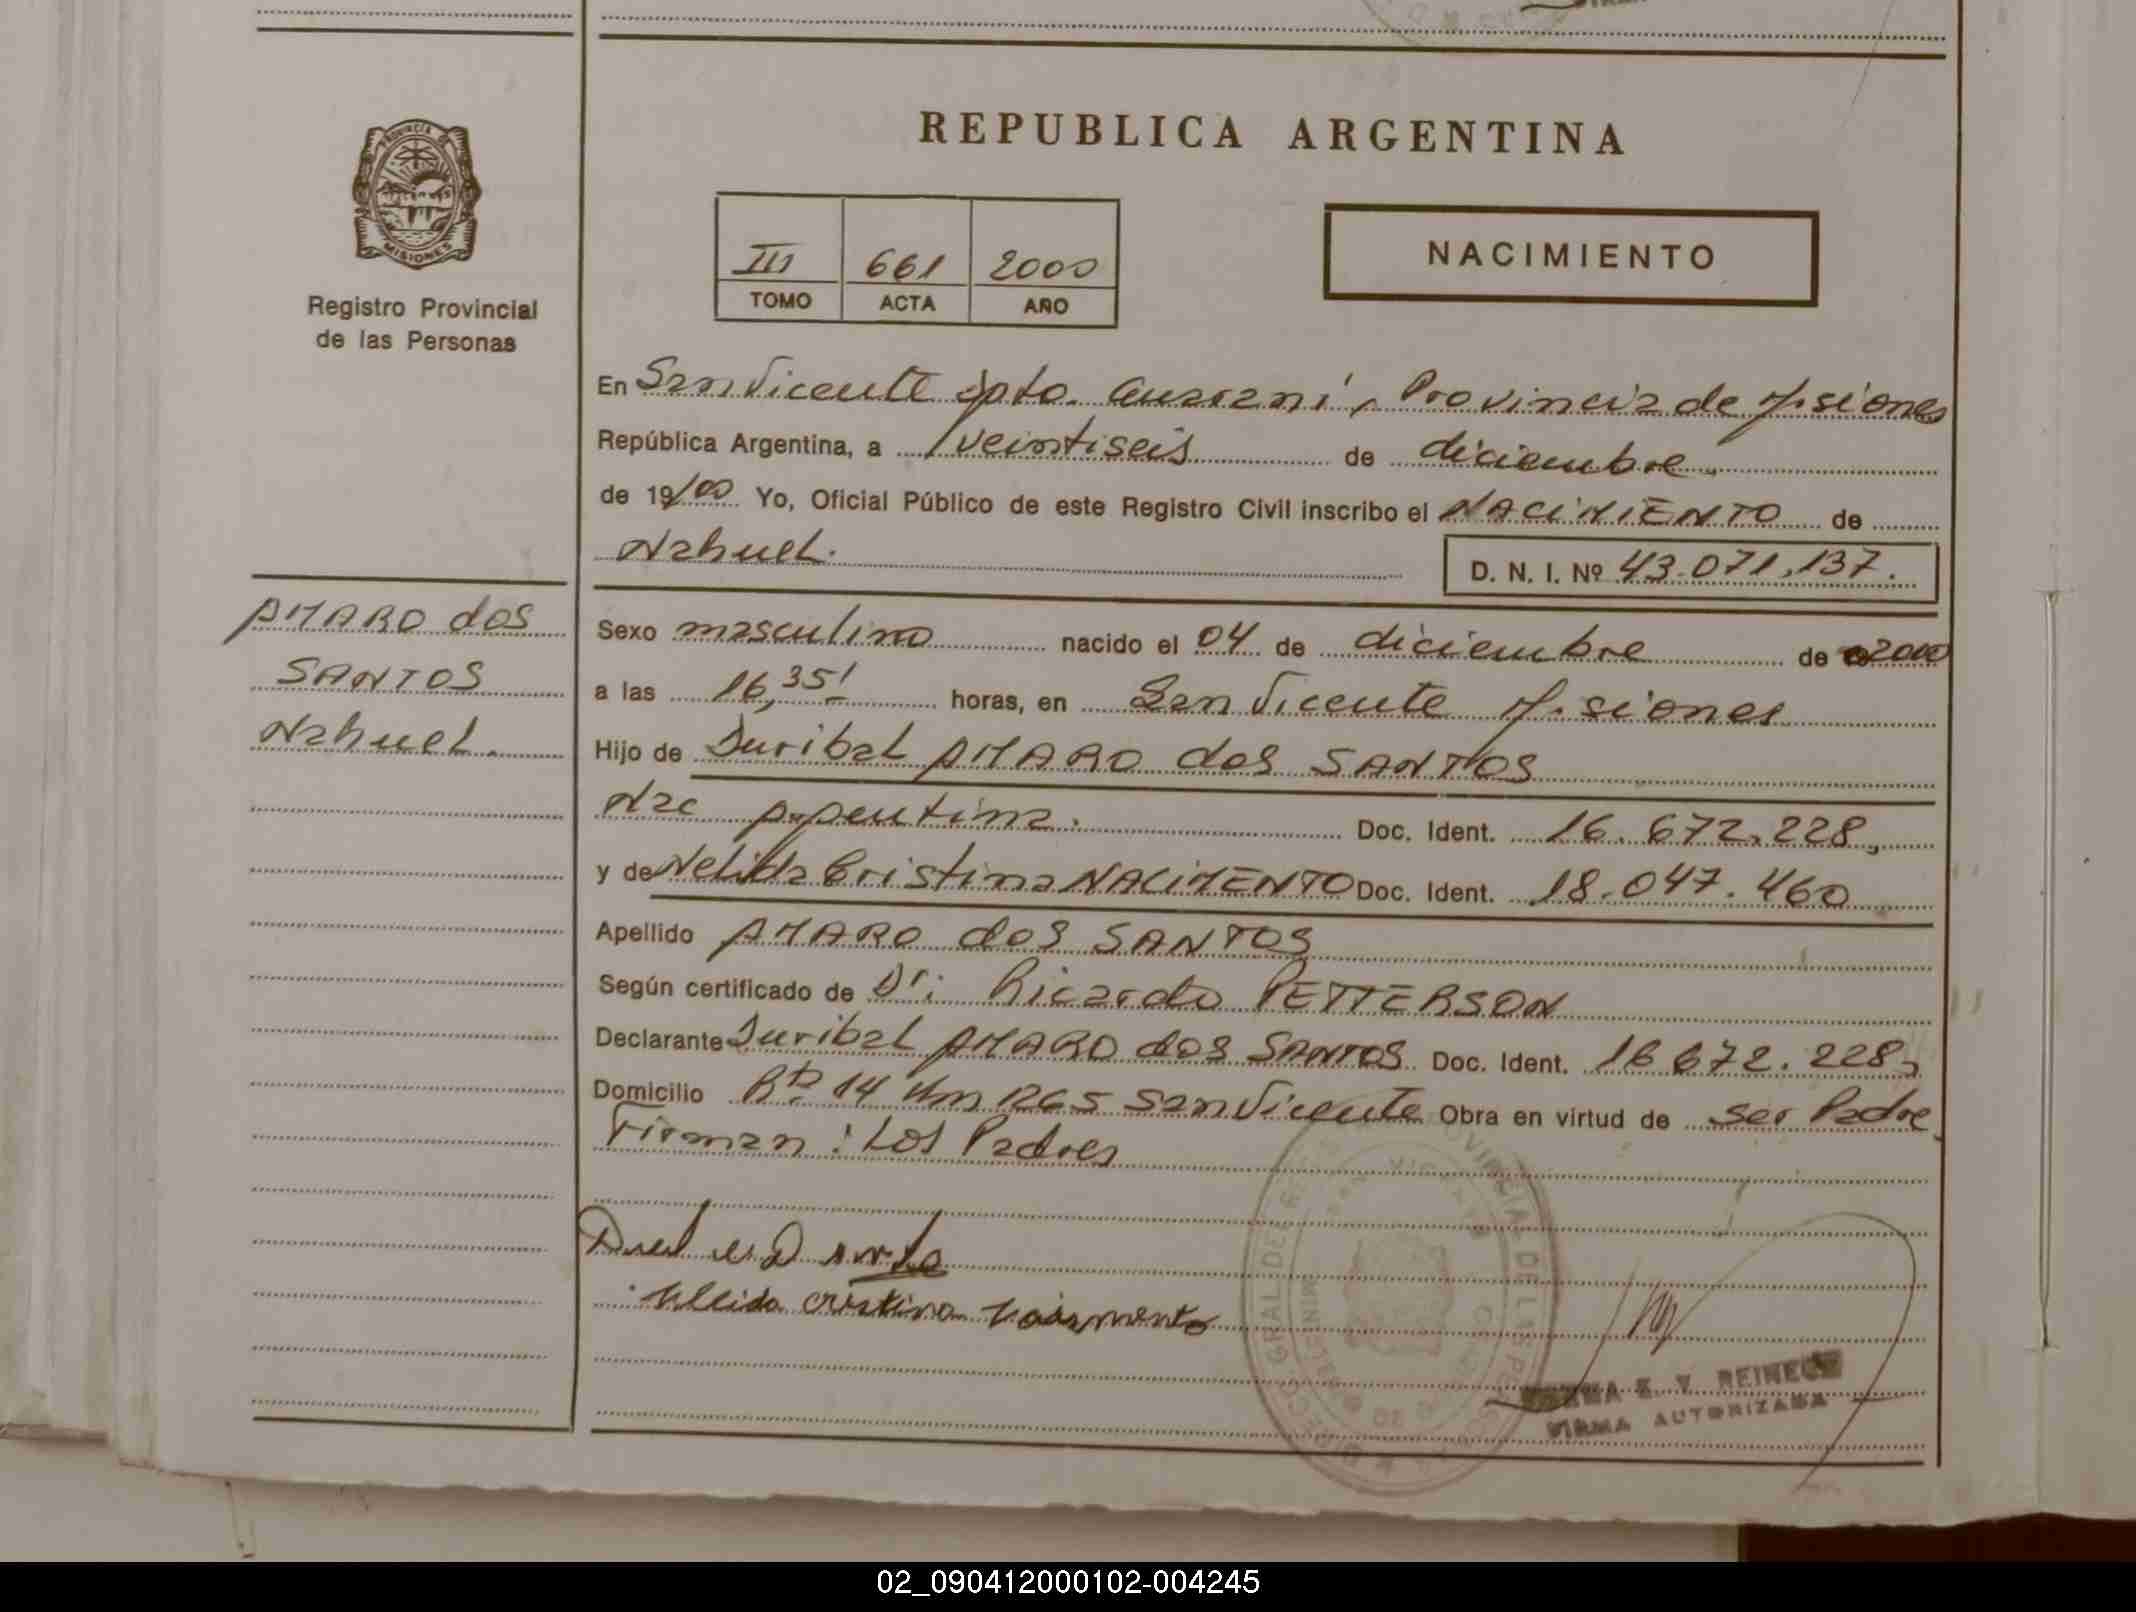 REPUBLICA ARGENTINA
PROVINCIA DE
MISIONES
Registro Provincial
de las Personas
III 661 2000
TOMO ACTA AÑO
NACIMIENTO
En San Vicente dpto. Guarani, Provincia de Misiones
República Argentina, a veintiseis de diciembre
de 19/00 Yo, Oficial Público de este Registro Civil inscribo el NACIMIENTO de
Nahuel.
D. N. I. Nº 43.071.137.
AMARO dos
SANTOS
Nahuel.
Sexo masculino nacido el 04 de diciembre de 2000
a las 16,35' horas, en San Vicente Misiones
Hijo de Juribal AMARO dos SANTOS
Nac Argentina. Doc. Ident. 16.672.228,
y de Nelida Cristina NACIMENTO Doc. Ident. 18.047.460
Apellido AMARO dos SANTOS
Según certificado de Dr: Ricardo PETTERSON
Declarante Juribal AMARO dos SANTOS Doc. Ident. 16 672.228,
Domicilio Rta. 14 Km 1265 San Vicente Obra en virtud de ser Padre
Firman: Los Padres
Nelida cristina
E. V. REINECK
FIRMA AUTORIZADA
02_090412000102-004245